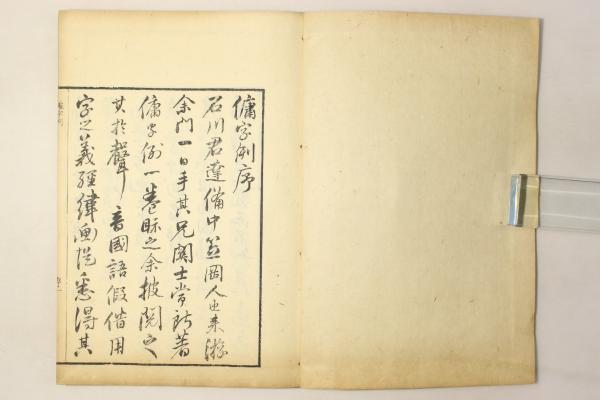 傭字例序
石川君達備中笠岡人也来游
余門一日手其兄関士常所著
傭字例一巻眎之余披閲之
其於聲音國語假借用
字之義經緯画㨾悉得其
傭字例
序一